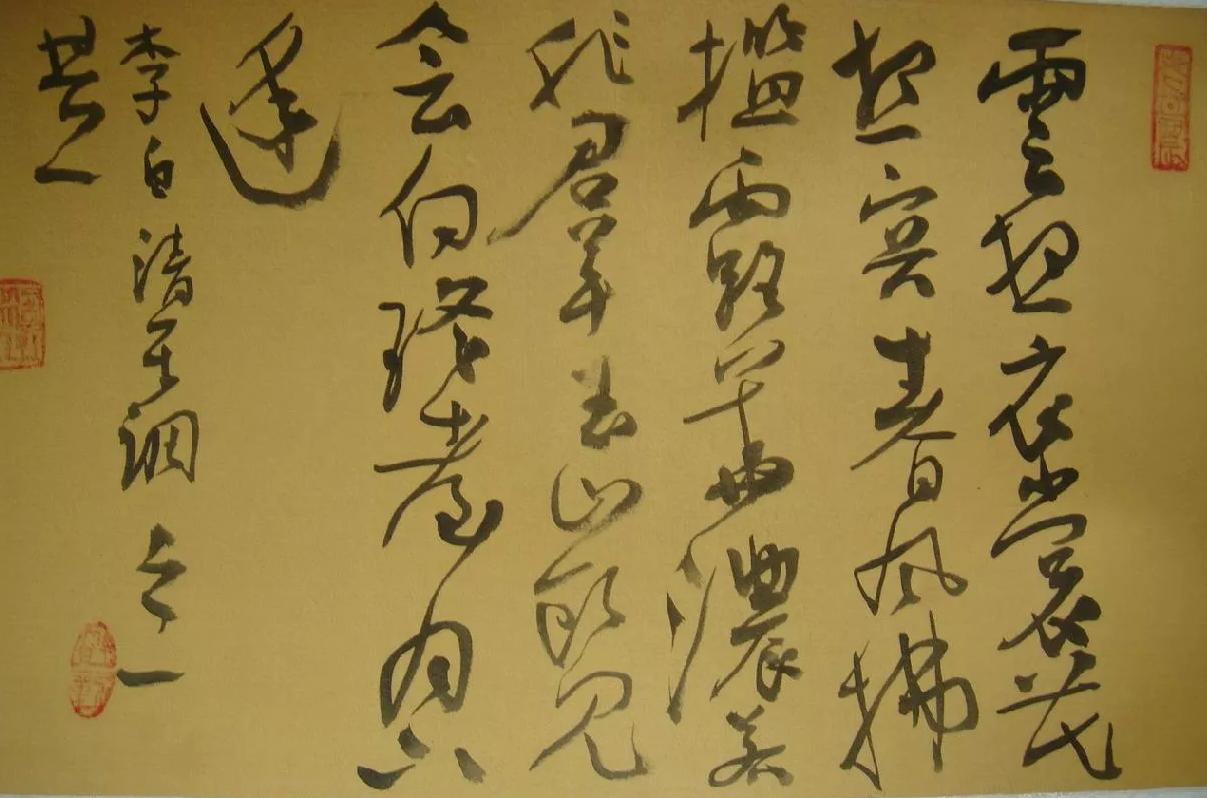 雲想衣裳花
想容春風拂
檻露華濃若
非羣玉山頭見
会向瑤臺月下
逢
李白清平調之一
其一